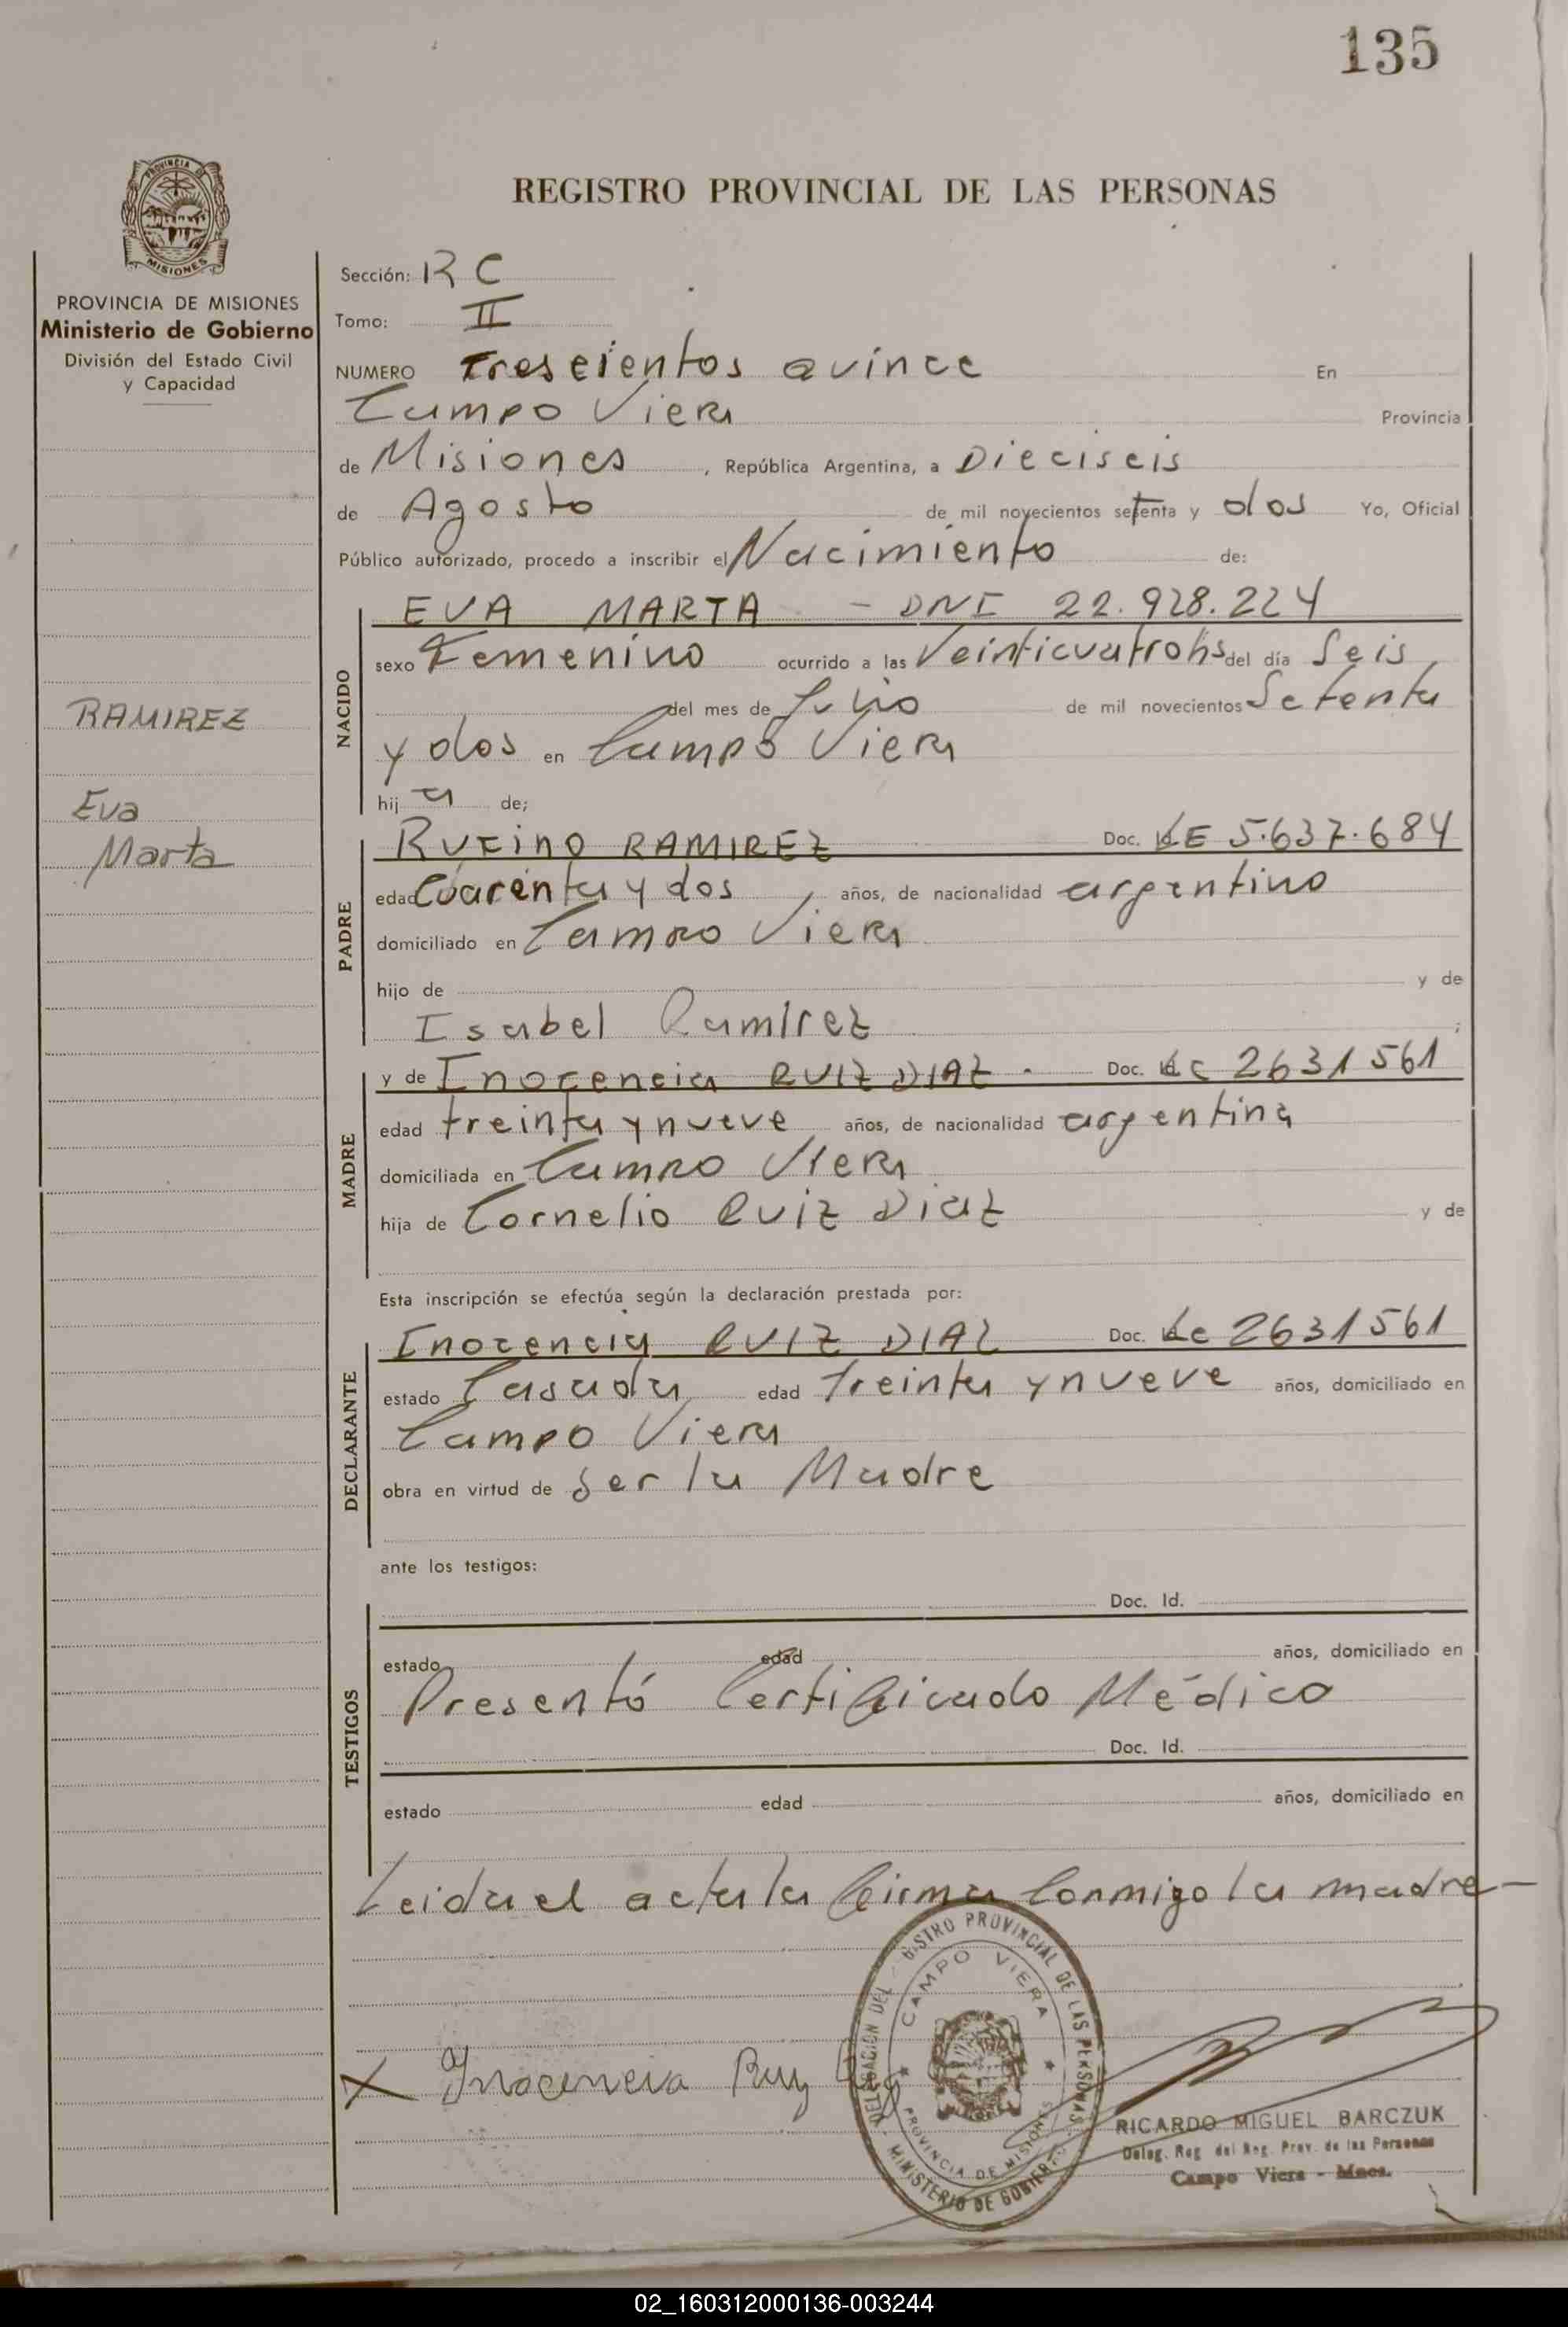 135
REGISTRO PROVINCIAL DE LAS PERSONAS
PROVINCIA DE
MISIONES
PROVINCIA DE MISIONES
Ministerio de Gobierno
División del Estado Civil
y Capacidad
RAMIREZ
Eva
Marta
Sección: RC
Tomo: II
NUMERO Trescientos Quince En
Campo Viera Provincia
de Misiones, República Argentina, a Dieciseis
de Agosto de mil novecientos setenta y dos Yo, Oficial
Público autorizado, procedo a inscribir el Nacimiento de:
NACIDO
EVA MARTA - DNI 22.928.224
sexo Femenino ocurrido a las Veinticuatro hs del día Seis
del mes de Julio de mil novecientos Setenta
y dos en Campo Viera
hija de;
PADRE
RUFINO RAMIREZ Doc. LE 5.637.684
edad Cuarenta y dos años, de nacionalidad argentino
domiciliado en Campo Viera
hijo de y de
Isabel Ramirez ;
MADRE
y de Inocencia RUIZ DIAZ - Doc. LC 2631561
edad treinta y nueve años, de nacionalidad argentina
domiciliada en Campo Viera
hija de Cornelio Ruiz Diaz y de
Esta inscripción se efectúa según la declaración prestada por:
DECLARANTE
Inocencia RUIZ DIAZ Doc. Lc 2631561
estado Casada edad Treinta y nueve años, domiciliado en
Campo Viera
obra en virtud de Ser la Madre
ante los testigos:
TESTIGOS
Doc. Id.
estado edad años, domiciliado en
Presentó Certificado Médico
Doc. Id.
estado edad años, domiciliado en
Leida el acta la firma Conmigo la madre-
DELEGACION DEL REGISTRO PROVINCIAL DE LAS PERSONAS
CAMPO VIERA
PROVINCIA DE MISIONES
MINISTERIO DE GOBIERNO
X Inocencia Ruiz
RICARDO MIGUEL BARCZUK
Deleg. Reg. del Reg. Prov. de las Personas
Campo Viera - Mnes.
02_160312000136-003244